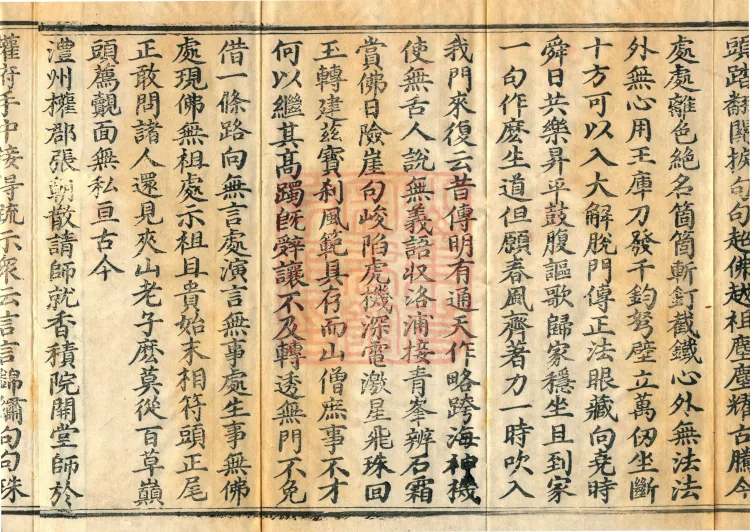 頭路翻關捩句句超佛越祖塵塵耀古騰今
處處離色絕名箇箇斬釘截鐵心外無法法
外無心用王庫刀發千鈞弩壁立萬仞坐斷
十方可以入大解脫門傳正法眼藏向堯時
舜日共樂昇平鼓腹謳歌歸家穩坐且到家
一句作麼生道但願春風齊著力一時吹入
我門來復云昔傳明有通天作略跨海神機
使無舌人說無義語収洛浦接青峯辨石霜
賞佛日險崖句峻陷虎機深電激星飛珠回
玉轉建茲寶剎風範具存而山僧庶事不才
何以繼其高躅旣辭讓不及轉透無門不免
借一條路向無言處演言無事處生事無佛
處現佛無祖處示祖且貴始末相符頭正尾
正敢問諸人還見夾山老子麼莫從百草巔
頭薦覿面無私亘古今
澧州權郡張朝散請師就香積院開堂師於
權府手中接得疏示衆云言言錦繡句句珠